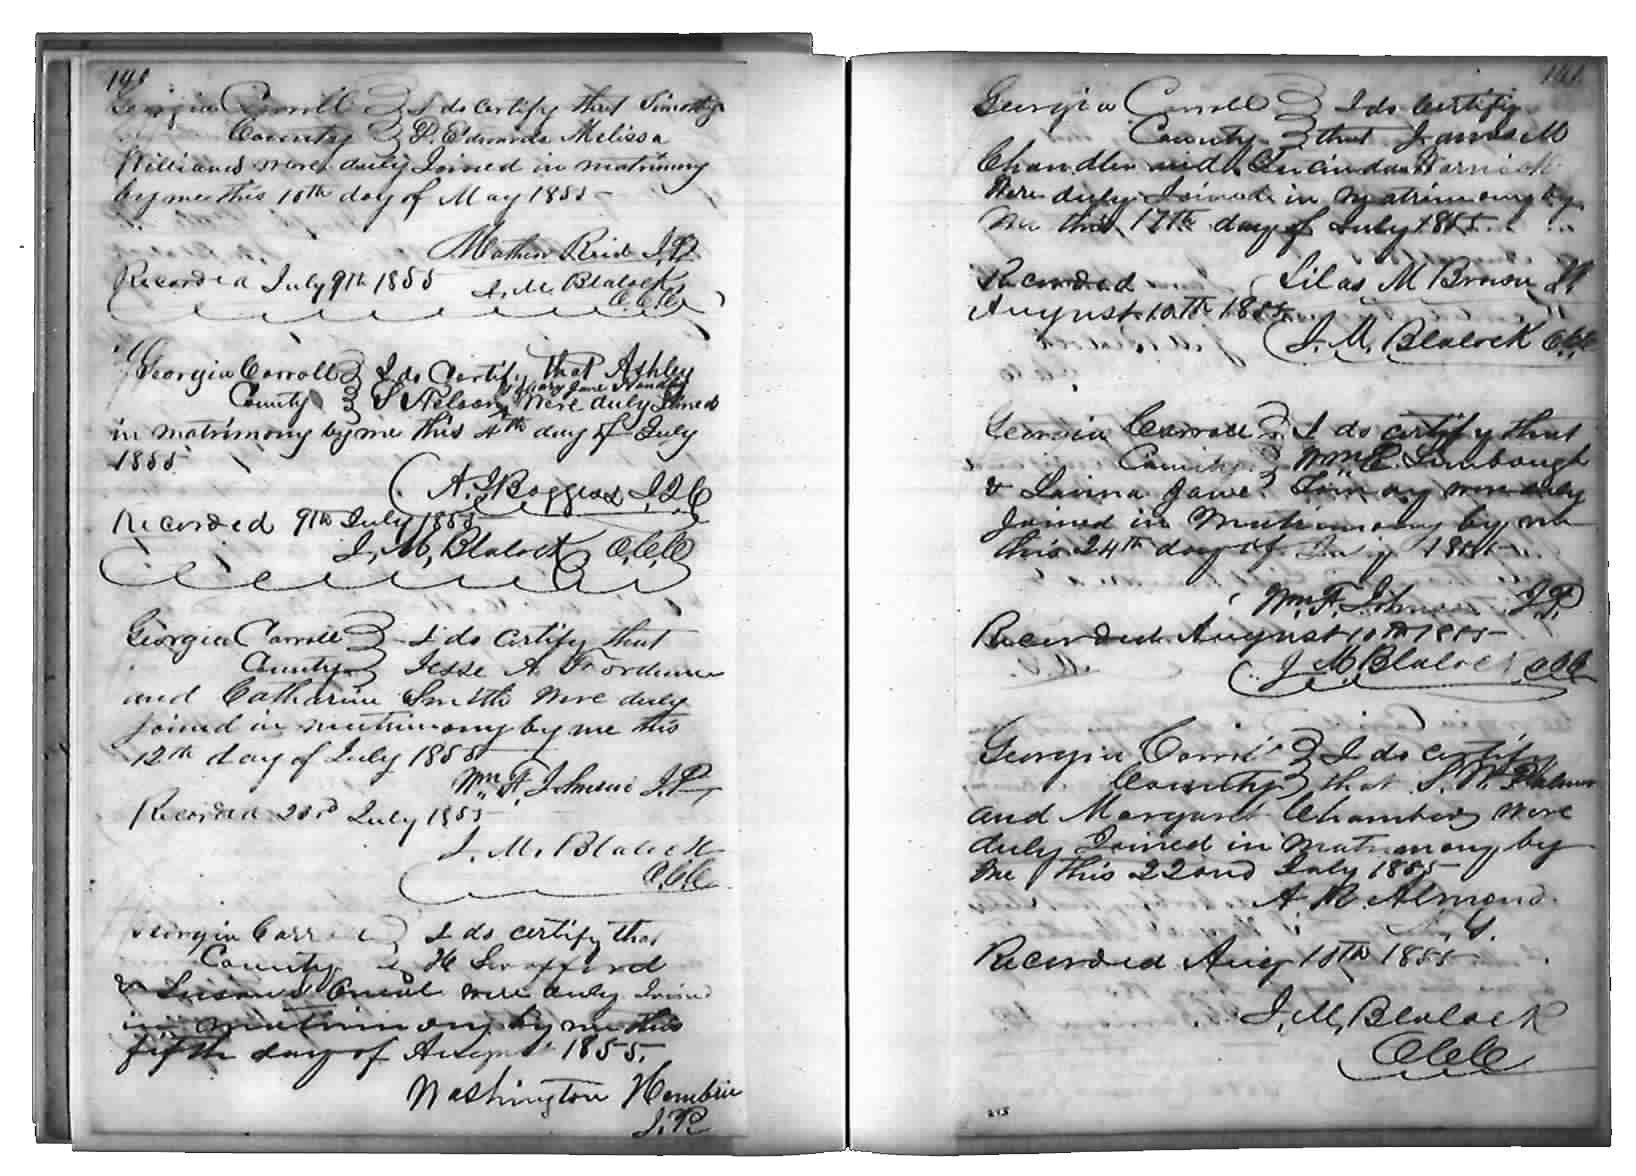 140
Georgia Carroll I do certify that Timothy
County P. Edwards Melissa
Williams were duly Joined in matrimony
by me this 10th day of May 1855
Mathew Reid J.P.
Recorded July 9th 1855 J. M. Blalock,
C.C.O.
Georgia Carroll I do Certify that Ashley
County S Nelson & Mary Jane were duly Joined
in matrimony by me this 4th day of July
1855
A. J. Boggess J.I.C
Recorded 9th July 1855
J. M. Blalock C.C.O.
Georgia Carroll I do certify that
County Jesse A.
and Catharine Smith were duly
joined in matrimony by me this
12th day of July 1855
Wm. F. Johnson J.P.
Recorded 23rd July 1855
J. M. Blalock
C.C.O.
Georgia Carroll I do certify that
County H Swofford
& were duly Joined
in matrimony by me this
fifth day of August 1855.
Washington Hembrie
J.P.
141
Georgia Carroll I do certify
County that James M
Chandler and Lucinda
were duly Joined in matrimony by
me this 17th day of July 1855.
Recorded Silas M Brown
August 10th 1855
J. M. Blalock C.C.O.
Georgia Carroll I do certify that
County Wm
& were duly
Joined in Matrimony by me
this 24th day of
Wm. F. Johnson J.P.
Recorded August 10th 1855
J. M. Blalock C.C.O.
Georgia Carroll I do certify
County that S. W.
and Margaret Chambers were
duly Joined in matrimony by
me this 22nd July 1855
A. R. Almond.
Recorded Aug 10th 1855
J. M. Blalock
C.C.O.